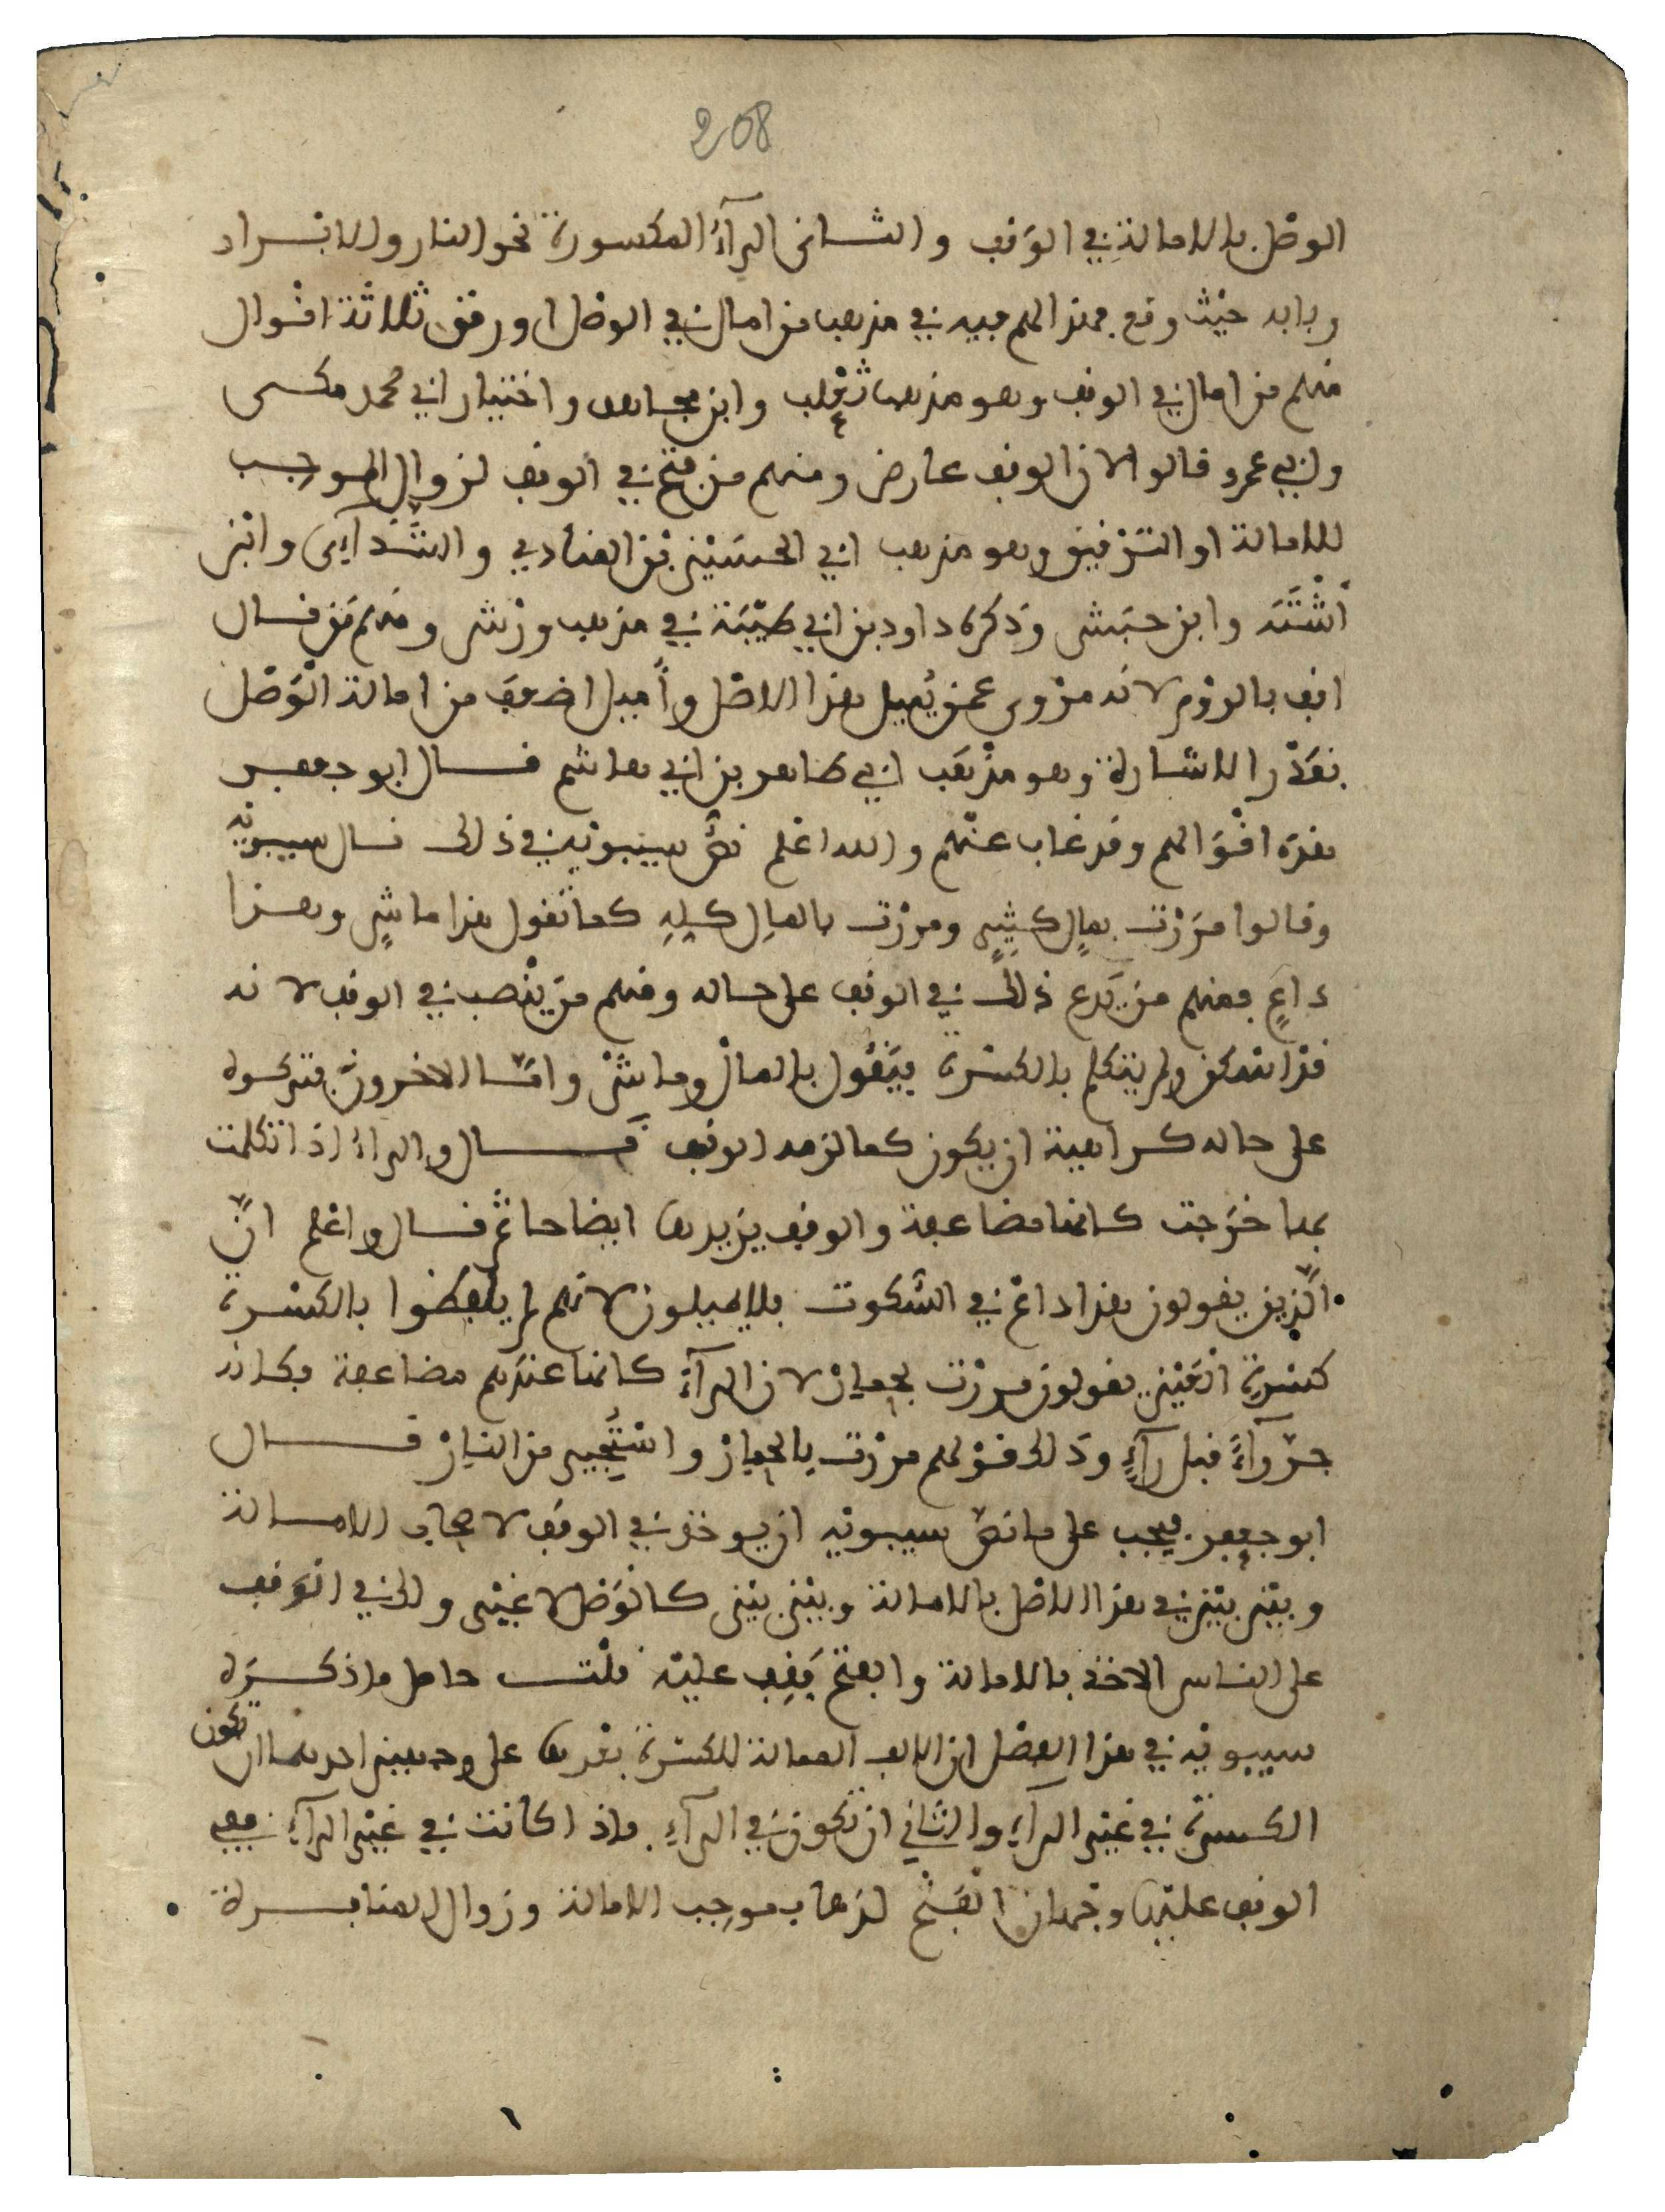 208
الوصل بالامالة في الوقف والثاني الرآءُ المكسورة نحو النار والابرار
وبابه حيْث وقع فمذاهبهم فيه في مذهب من امال في الوصْل او رقق ثلاثة اقوال
منهم من امال في الوقف وهو مذهب ثعْلب وابن مجاهد واختيار ابي محمد مكي
وابي عمرو قالوا لان الوقف عارض ومنهم من فتح في الوقف لزوال الموجب
للامالة او الترْقيق وهو مذهب ابي الحسَيْن بْن المنادي والشَّذَآئي وابْن
أشْتَة وابن حبَش وذكره داود بن ابي طيْبَة في مذهب ورْش ومنهم مَن قال
اقف بالروْم لانه مرْوي عمن يُميل هذا الاصْل وأميل اضعف من امالة الْوَصْل
بقدْر الاشارة وهو مذْهَب ابي طاهر بن ابي هاشم قال ابو جعفر
هذه اقْوَالهم وقد غاب عنْهم والله اعْلم نصُّ سيبويْه في ذلك قال سيبويْه
وقالوا مرَرْت بمالٍ كثِيرٍ ومررْت بالمالِ كلِهِ كما تقول هذا ماشٍ وهذا
داعٍ فمنهم من يَدع ذلك في الوقف على حاله ومنهم منْ يَنْصب في الوقف لانه
قدْ اسْكن ولم يتكلم بالكسْرة فيَقُول بالمالْ وماشْ وامَّا الاخرون فتركوه
على حاله كراهية ان يكون كما لزمه الوقف قَال والراءُ اذا تكلمت
بها خرَجت كانها مضاعفة والوقف يزيدها ايضاحا ثم قال واعْلم انَّ
الَّذين يقولون هذا داعْ في السُّكوت فلا يميلون لانهم لم يلفظُوا بالكسْرة
كسْرة العَيْن يقولون مررْت بحمارْ لان الرآءَ كانها عندهم مضاعفة فكانه
جرّ رآءً قبل رآءٍ وذلك قوْلهم مررْت بالحمارْ واسْتَجير من النارْ قال
ابو جعفر فيجب على ما نصَّ سيبويْه ان يوخذ في الوقف لاصحاب الامالة
وبيْن بيْن في هذا الاصْل بالامالة وبيْن بيْن كالْوَصْل لا غيْر والى في الْوَقف
على الناس الاخذ بالامالة وابفتح يَقِف عليْه قلْت حاصل ما ذكَرَه
سيبويْه في هذا الفصْل ان الالف الممالة للكسْرة بعْدها على وجهين احدهما ان تكون
الكسرة في غيْر الرآءِ والثاني ان تكون في الرآءِ فاذا كانت في غيْر الرآءِ ففي
الوقف عليْها وجْهان الْفَتْح لذهاب موجب الامالة وزوال المنافرة